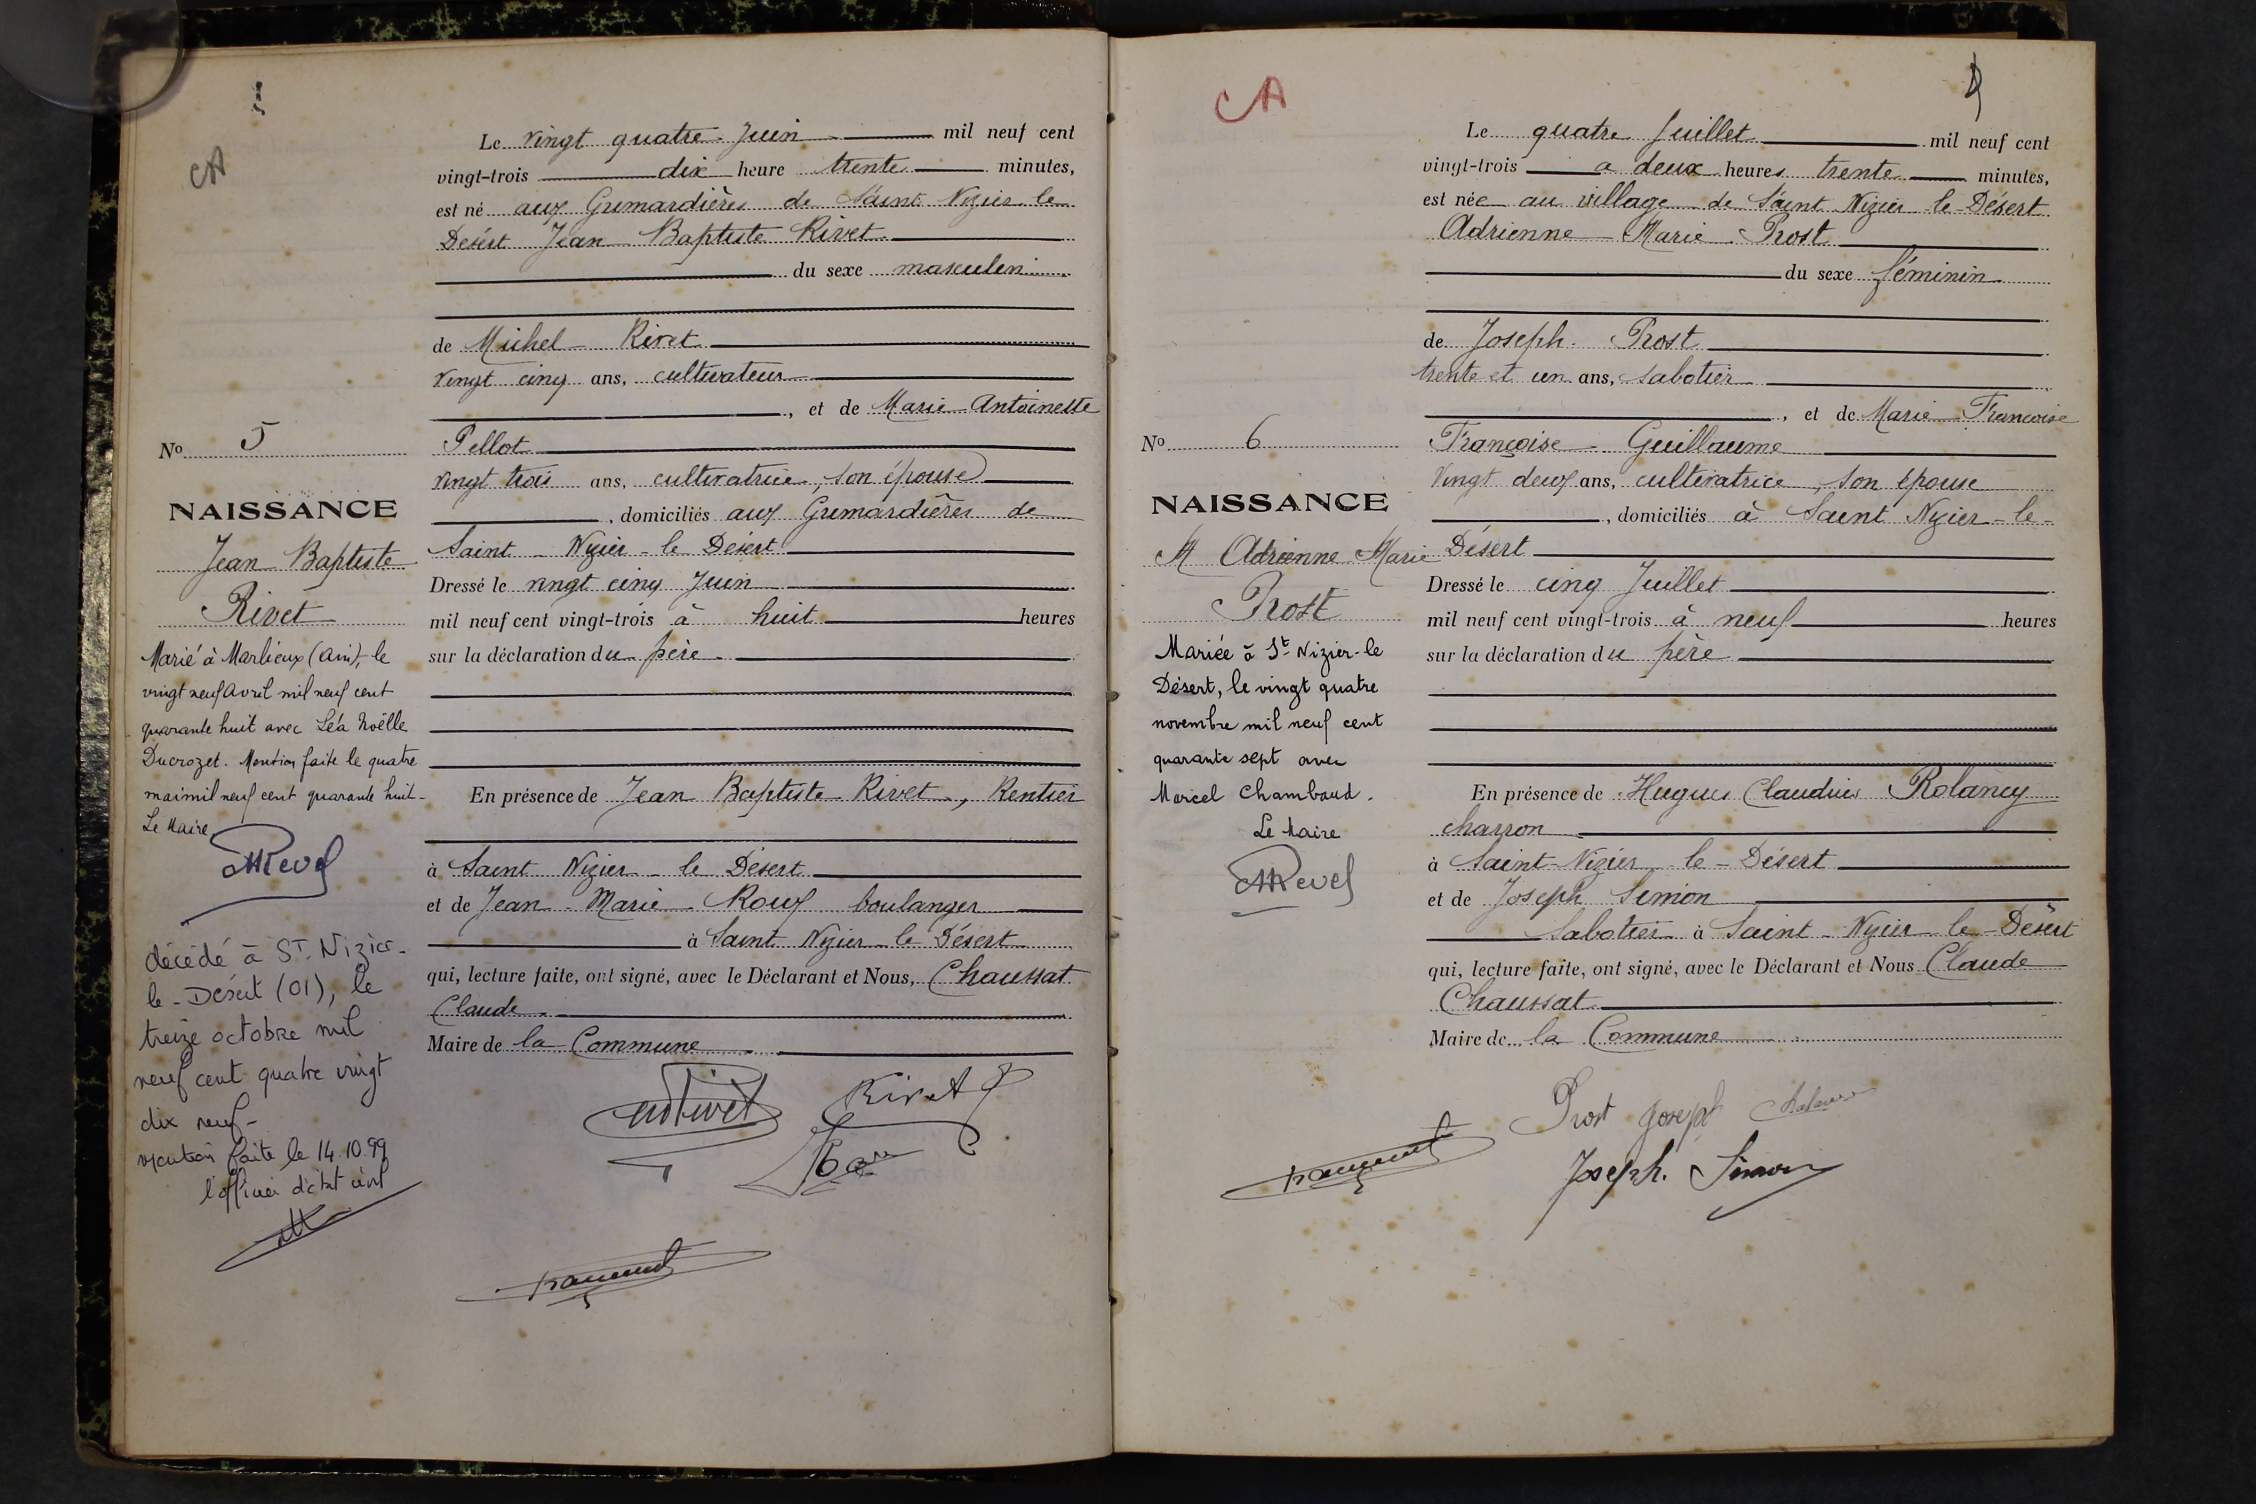 CA
Le vingt quatre Juin mil neuf cent
vingt-trois dix heure trente minutes,
est né aux Grimardières de Saint Nizier le
Désert Jean Baptiste Rivet
du sexe masculin
de Michel Rivet
vingt cinq ans, cultivateur
, et de Marie Antoinette
Pellot
vingt trois ans, cultivatrice, son épouse
, domiciliés aux Grimardières de
Saint-Nizier-le Désert
Dressé le vingt cinq Juin
mil neuf cent vingt-trois à huit heures
sur la déclaration du père
En présence de Jean Baptiste Rivet, Rentier
à Saint Nizier-le Désert
et de Jean-Marie Roux boulanger
à Saint Nizier-le Désert
qui, lecture faite, ont signé, avec le Déclarant et Nous, Chaussat
Claude
Maire de la Commune
Rivet
No 5
NAISSANCE
Jean Baptiste
Rivet
Marié à Marlieux (Ain), le
vingt neuf Avril mil neuf cent
quarante huit avec Léa Noëlle
Ducrozet. Mention faite le quatre
mai mil neuf cent quarante huit-
Le Maire
décédé à St. Nizier-
le-Désert (01), le
treize octobre mil
neuf cent quatre vingt
dix neuf-
mention faite le 14.10.99
l'officier d'état civil
CA
Le quatre Juillet mil neuf cent
vingt-trois a deux heures trente minutes,
est née au village de Saint Nizier le-Désert
Adrienne Marie Prost
du sexe féminin
de Joseph Prost
trente et un ans, sabotier
, et de Marie Françoise
Françoise Guillaume
Vingt deux ans, cultivatrice, son épouse
, domiciliés à Saint Nizier-le-
Désert
Dressé le cinq Juillet
mil neuf cent vingt-trois à neuf heures
sur la déclaration du père
En présence de Hugues Claudius Rolancy
charron
à Saint-Nizier-le-Désert
et de Joseph Simon
Sabotier à Saint-Nizier-le-Désert
qui, lecture faite, ont signé, avec le Déclarant et Nous Claude
Chaussat
Maire de la Commune
Prost Joseph
Joseph. Simon
No 6
NAISSANCE
M Adrienne Marie
Prost
Mariée à St Nizier-le
Désert, le vingt quatre
novembre mil neuf cent
quarante sept avec
Marcel Chambaud.
Le Maire